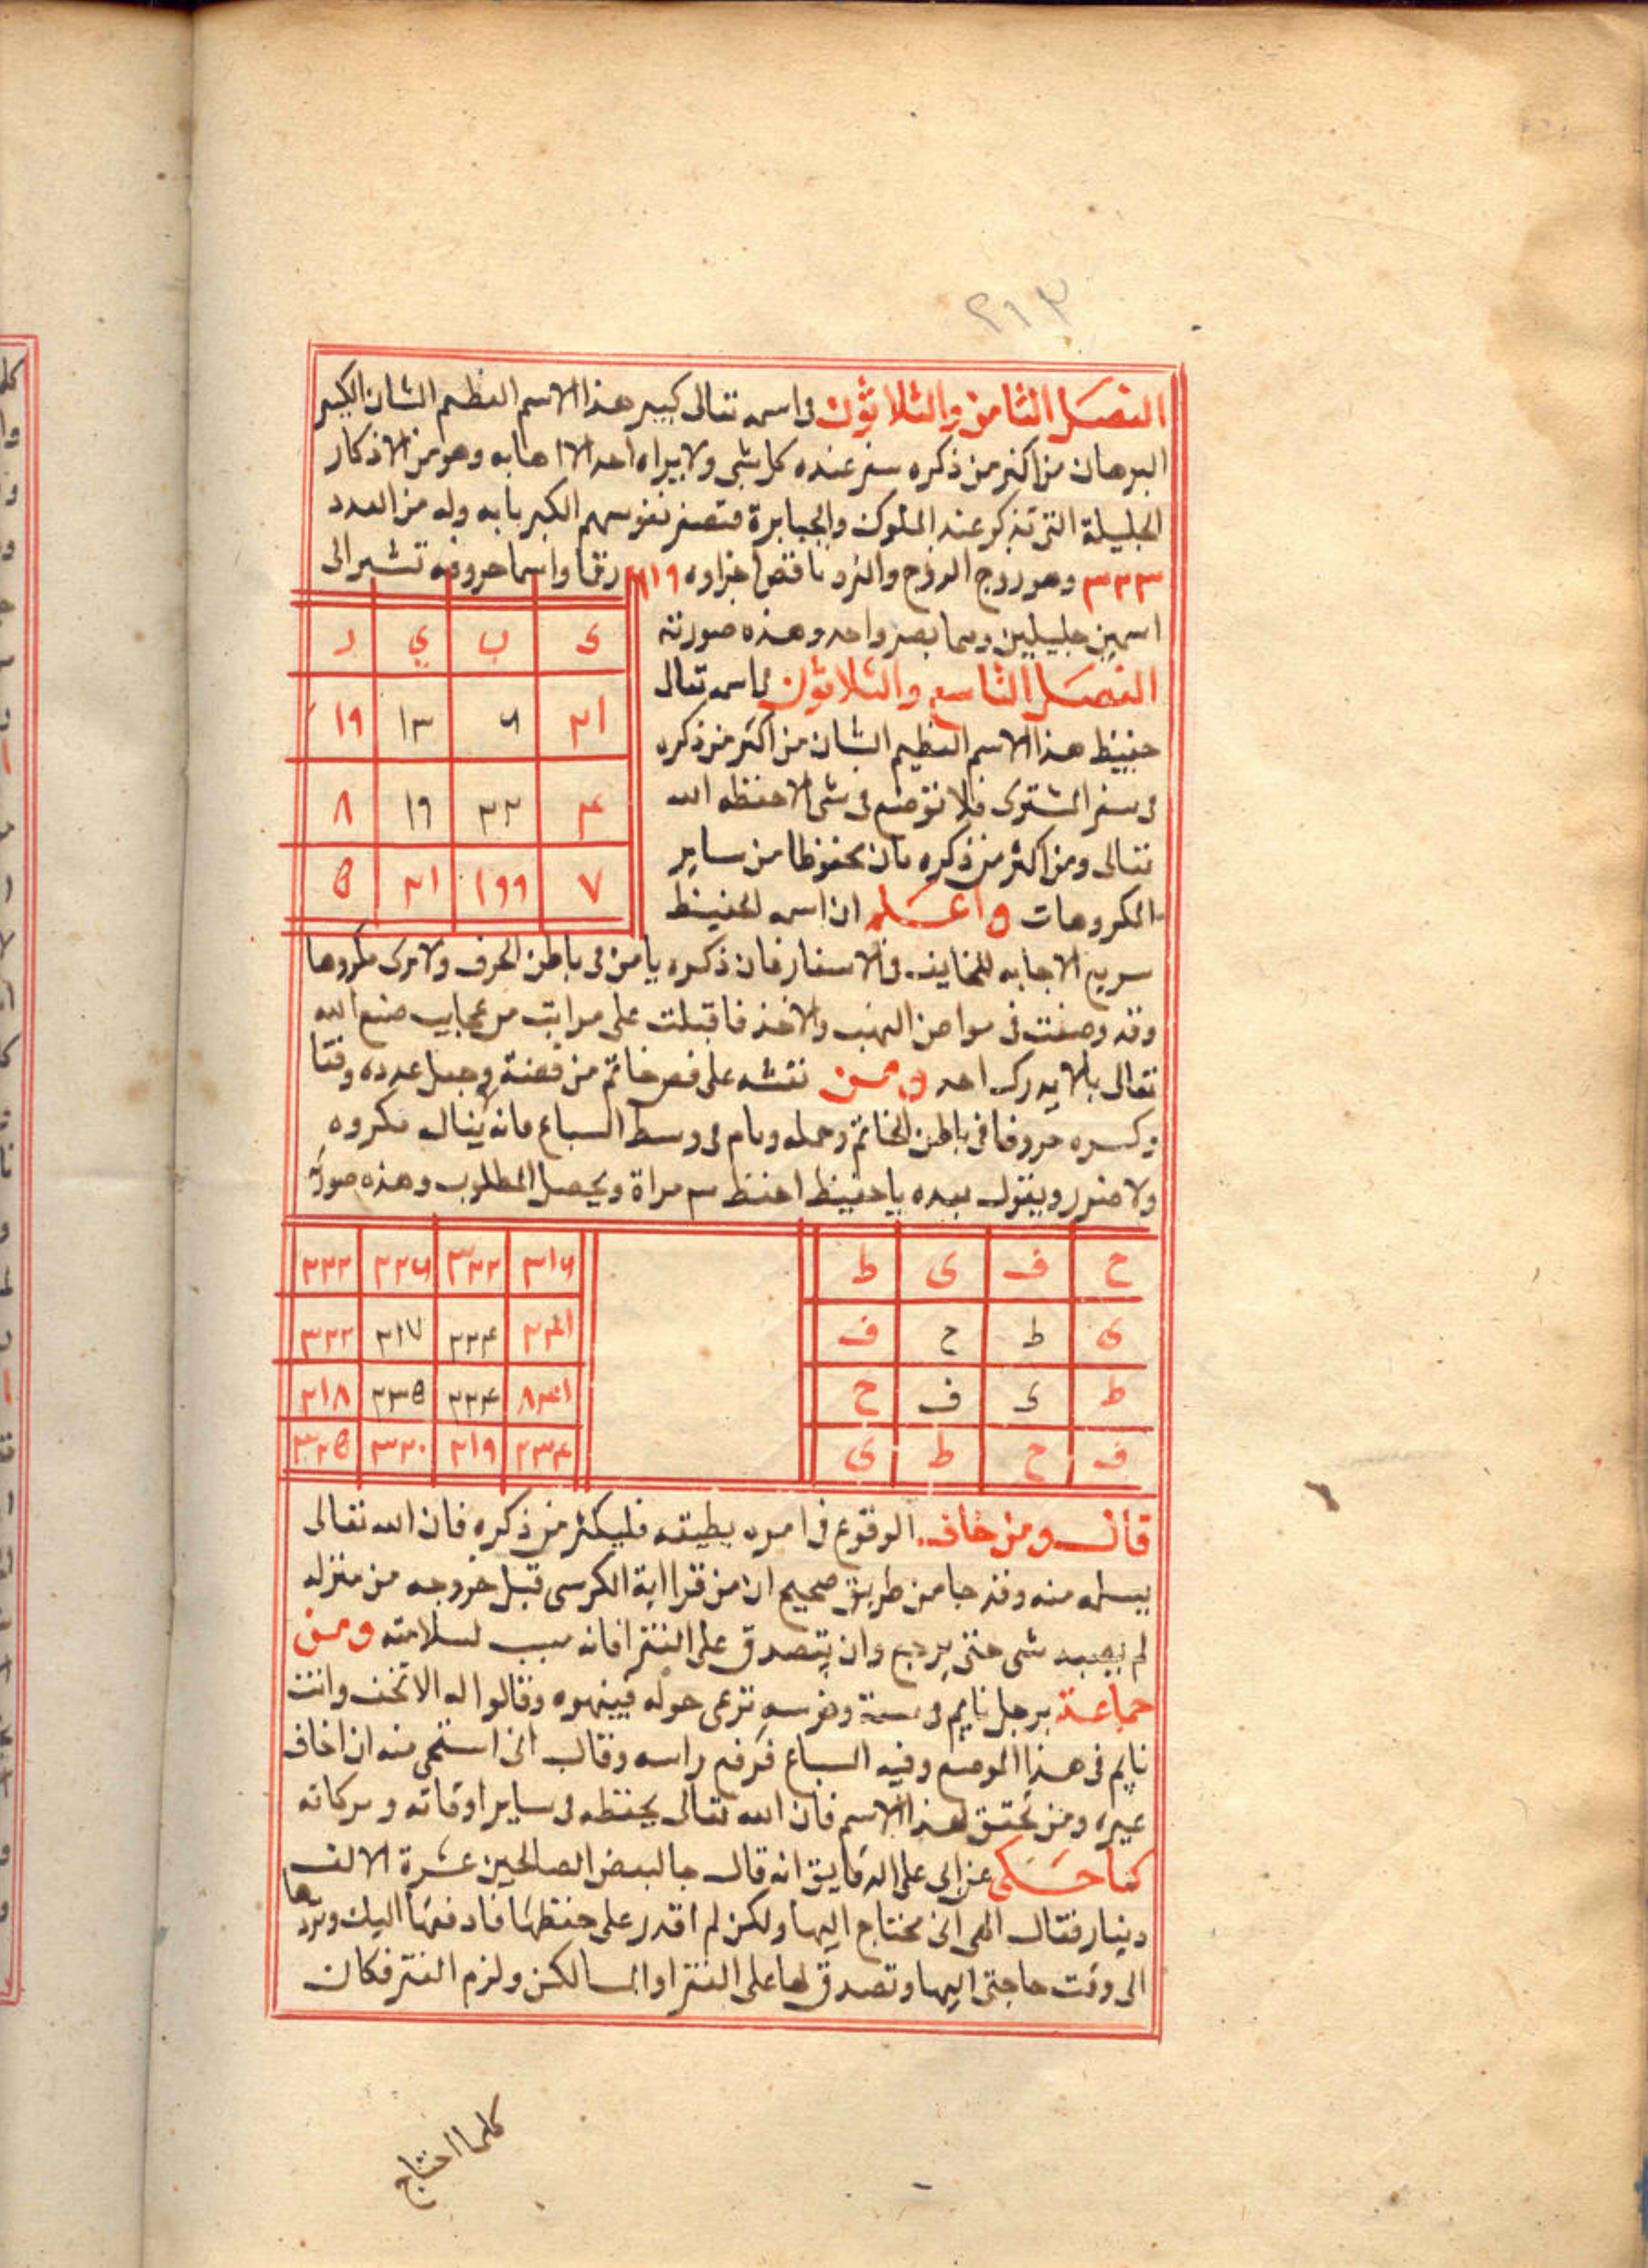 ٢١٣
الفصل الثامن والثلاثون في اسمه تعالى كبير هذا الاسم العظيم الشان الكبير
البرهان من اكثر من ذكره صغر عنده كل شي ولا يراه احد الا هابه وهو من الاذكار
الجليلة التي تذكر عند الملوك والجبابرة فتصغر نفوسهم الكبريا به وله من العدد
٢٣٢ وهو زوج الزوج والفرد ناقص اجزاوه ٢١٩ رقما واسما حروفه تشير الى
اسمين جليلين وهما بصير واحد وهذه صورته
ك ب ي ر
٢١ ٦ ١٣ ١٩
٤ ٢٢ ١٩ ٨
٧ ١٩٩ ٢١ ٥
الفصل التاسع والثلاثون في اسمه تعالى
حفيظ هذا الاسم العظيم الشان من اكثر من ذكره
في سفر المشترى فلا توضع في شي الا حفظه الله
تعالى ومن اكثر من ذكره كان محفوظا من ساير
المكروهات واعلم ان اسمه الحفيظ
سريع الاجابه للخايف في الاسفار فان ذكره يامن في باطن الخوف ولا يرى مكروها
وقد وصفت في مواطن النهب والاخذ فاقبلت على مراتب من عجايب صنع الله
تعالى بالا يدركه احد ومن نقشه على فص خاتم من فضة وجعل عدده وفقا
وكسره حروفا في باطن الخاتم وحمله ونام في وسط السباع فانه ينال مكروه
ولا ضرر ويقول بعده ياحفيظ احفظ ٣ مراة ويحصل المطلوب وهذه صورته
ح ف ي ظ
ي ظ ح ف
ظ ي ف ح
ف ح ظ ي
٣١٦ ٣٢٢ ٢٢٦ ٢٢٢
٢٢٤ ٢١٧ ٣٢٢
٢٢٤ ٢٣٥ ٢١٨
٢٣٤ ٢١٩ ٣٢٠ ٣٢٥
قال ومن خاف الوقوع في امر لا يطيقه فليكثر من ذكره فان الله تعالى
يسلمه منه وقد جا من طريق صحيح ان من قرا اية الكرسي قبل خروجه من منزله
لم يصبه شي حتى يرجع وان يتصدق على الفقرا فانه سبب لسلامته ومر
جماعة برجل نايم في وفرسه ترعى حوله فنبهوه وقالوا له الا تخف وانت
نايم في هذا الموضع وفيه السباع فرفع راسه وقال اني استحي منه ان اخاف
غيره ومن تحقق بهذا الاسم فان الله تعالى يحفظه في ساير اوقاته وبركاته
كما حكى عن ابي علي الدقايق انه قال جا لبعض الصالحين عشرة الالف
دينار فقال الهي اني محتاج اليها ولكن لم اقدر على حفظها فادفعها اليك وتردها
الى وقت حاجتي اليها وتصدق بها على الفقرا والمسالكن ولزم الفقر فكان
كلما احتاج